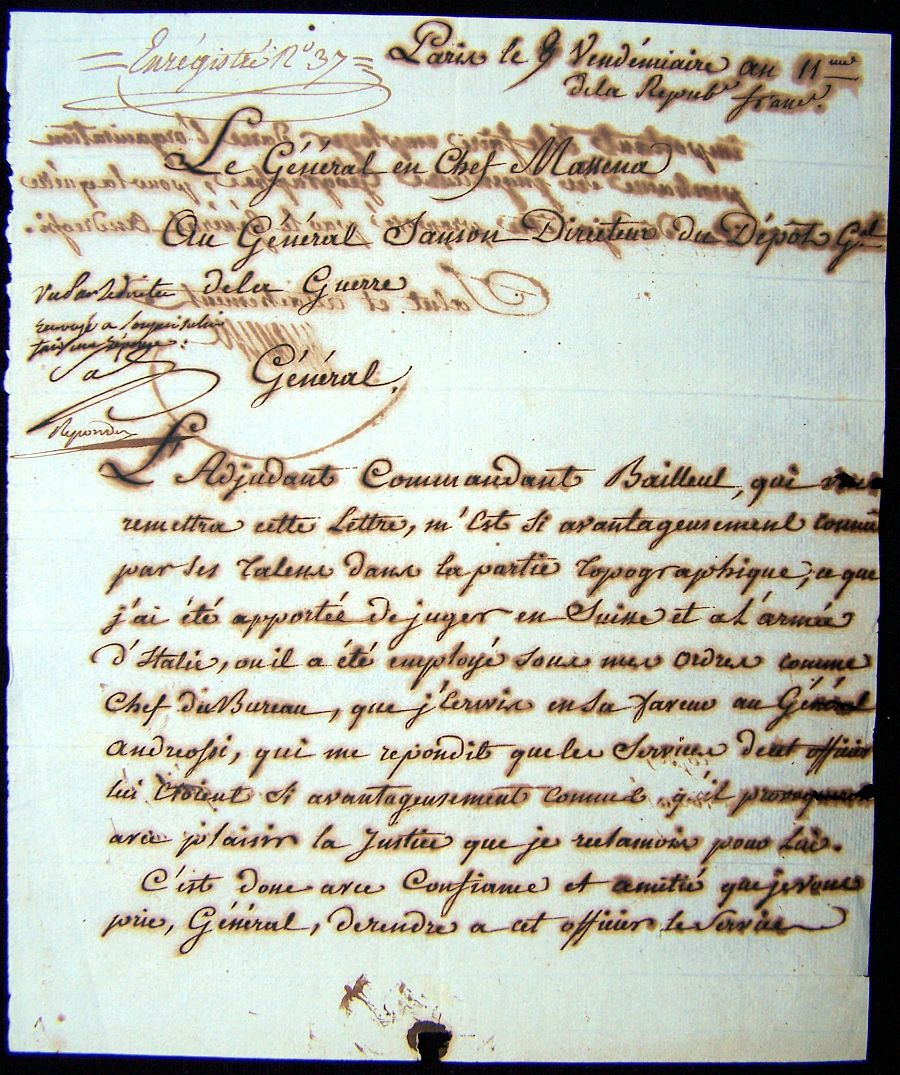 = Enrégistré N.º 37 =
Paris le 9 Vendémiaire an 11me
de la Repub.e franc.e
Le Général en Chef Massena
Au Général Sanson Directeur du Dépôt G.al
de la Guerre
Vu par le directeur
renvoyé a
faire une réponse :
Repondu
Général,
L'Adjudant Commandant Bailleul, qui vous
remettra cette Lettre, m'Est si avantageusement connu
par ses Talens dans la partie Topographique, a que
j'ai été apportée de juger en Suisse et a L'armée
d'Italie, ou il a été employé sous mes Ordres comme
Chef du Bureau, que j'Ecrivis en sa faveur au Général
andreossi, qui me repondit que les Services de cet officier
lui Etoient si avantageusement connus qu'il
avec plaisir la Justice que je reclamois pour Lui.
C'est donc avec Confiance et amitié que je vous
prie, Général, de rendre a cet officier le Service